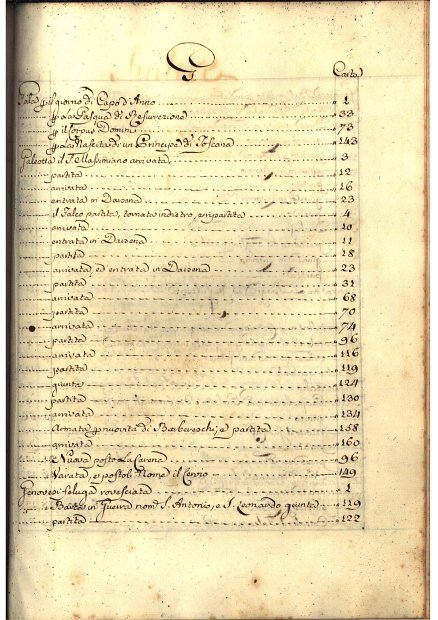 G
Carta
Gala p il giorno di Capo d'Anno 1
p la Pasqua di Resurezione 33
p il Corpus Domini 73
p la Nascita di un Principe di Toscana 143
Galeotta il S. Massimiano arrivata 3
partita 12
arrivata 16
entrata in Darsena 23
il Falco partita, tornata indietro, e ripartita 4
arrivata 10
entrata in Darsena 11
partita 18
arrivata, ed entrata in Darsena 23
partita 31
arrivata 68
partita 70
arrivata 74
partita 96
arrivata 116
partita 119
giunta 124
partita 130
arrivata 134
Armata p nuovità di Barbereschi, e partita 158
arrivata 160
Nuova posto la Carena 96
Varata, e postoli Nome il Cervio 149
Genovesi feluga rovesciata 1
in Guerra nom. S. Antonio, e S. Leonardo giunta 119
partita 122